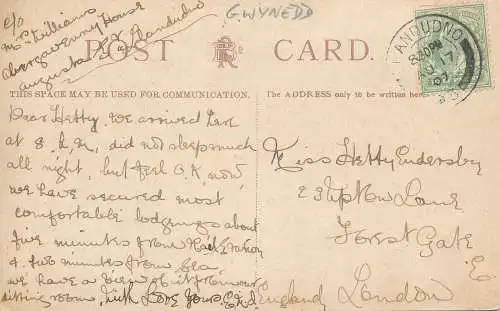 c/o
Mrs Williams
Abergavenny House
Augusta St Llandudno
GWYNEDD
POST CARD.
THIS SPACE MAY BE USED FOR COMMUNICATION.
The ADDRESS only to be written here.
LLANDUDNO
8.30PM
AU 17
07
Dear Hetty, we arrived here
at 8 a.m, did not sleep much
all night, but feel O.K. now,
we have secured most
comfortable lodgings about
five minutes from Rail Station
& two minutes from Sea,
we have a view of it from our
sitting room, with Love yours
Miss Hetty Endersby
23 Upton Lane
Forest Gate
E.
London
England